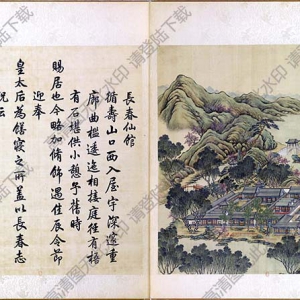 長春仙館
循壽山口西入屋宇深邃重
廊曲檻逶迤相接庭徑有梧
有石堪供小憩予舊時
賜居也今略加脩飾遇佳辰令節
迎奉
皇太后為膳寢之所蓋以長春志
祝云